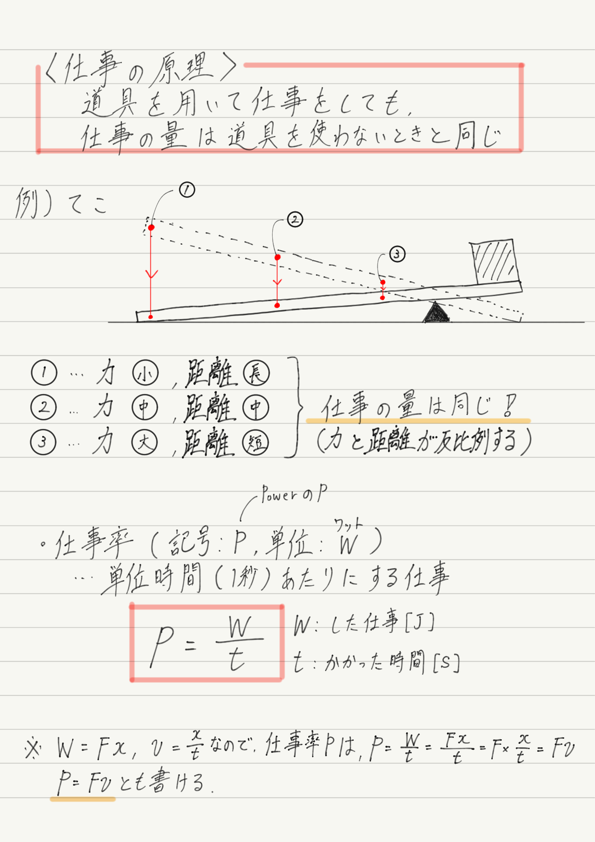 〈仕事の原理〉
道具を用いて仕事をしても,
仕事の量は道具を使わないときと同じ
例)てこ
①
②
③
① … 力 小 , 距離 長
② … 力 中 , 距離 中
③ … 力 大 , 距離 短
仕事の量は同じ!
(力と距離が反比例する)
PowerのP
・仕事率 (記号: P, 単位: W)
ワット
… 単位時間(1秒)あたりにする仕事
P = W/t
W: した仕事[J]
t: かかった時間[S]
※ W = Fx, v = x/t なので, 仕事率Pは, P = W/t = Fx/t = F× x/t = Fv
P = Fv とも書ける.